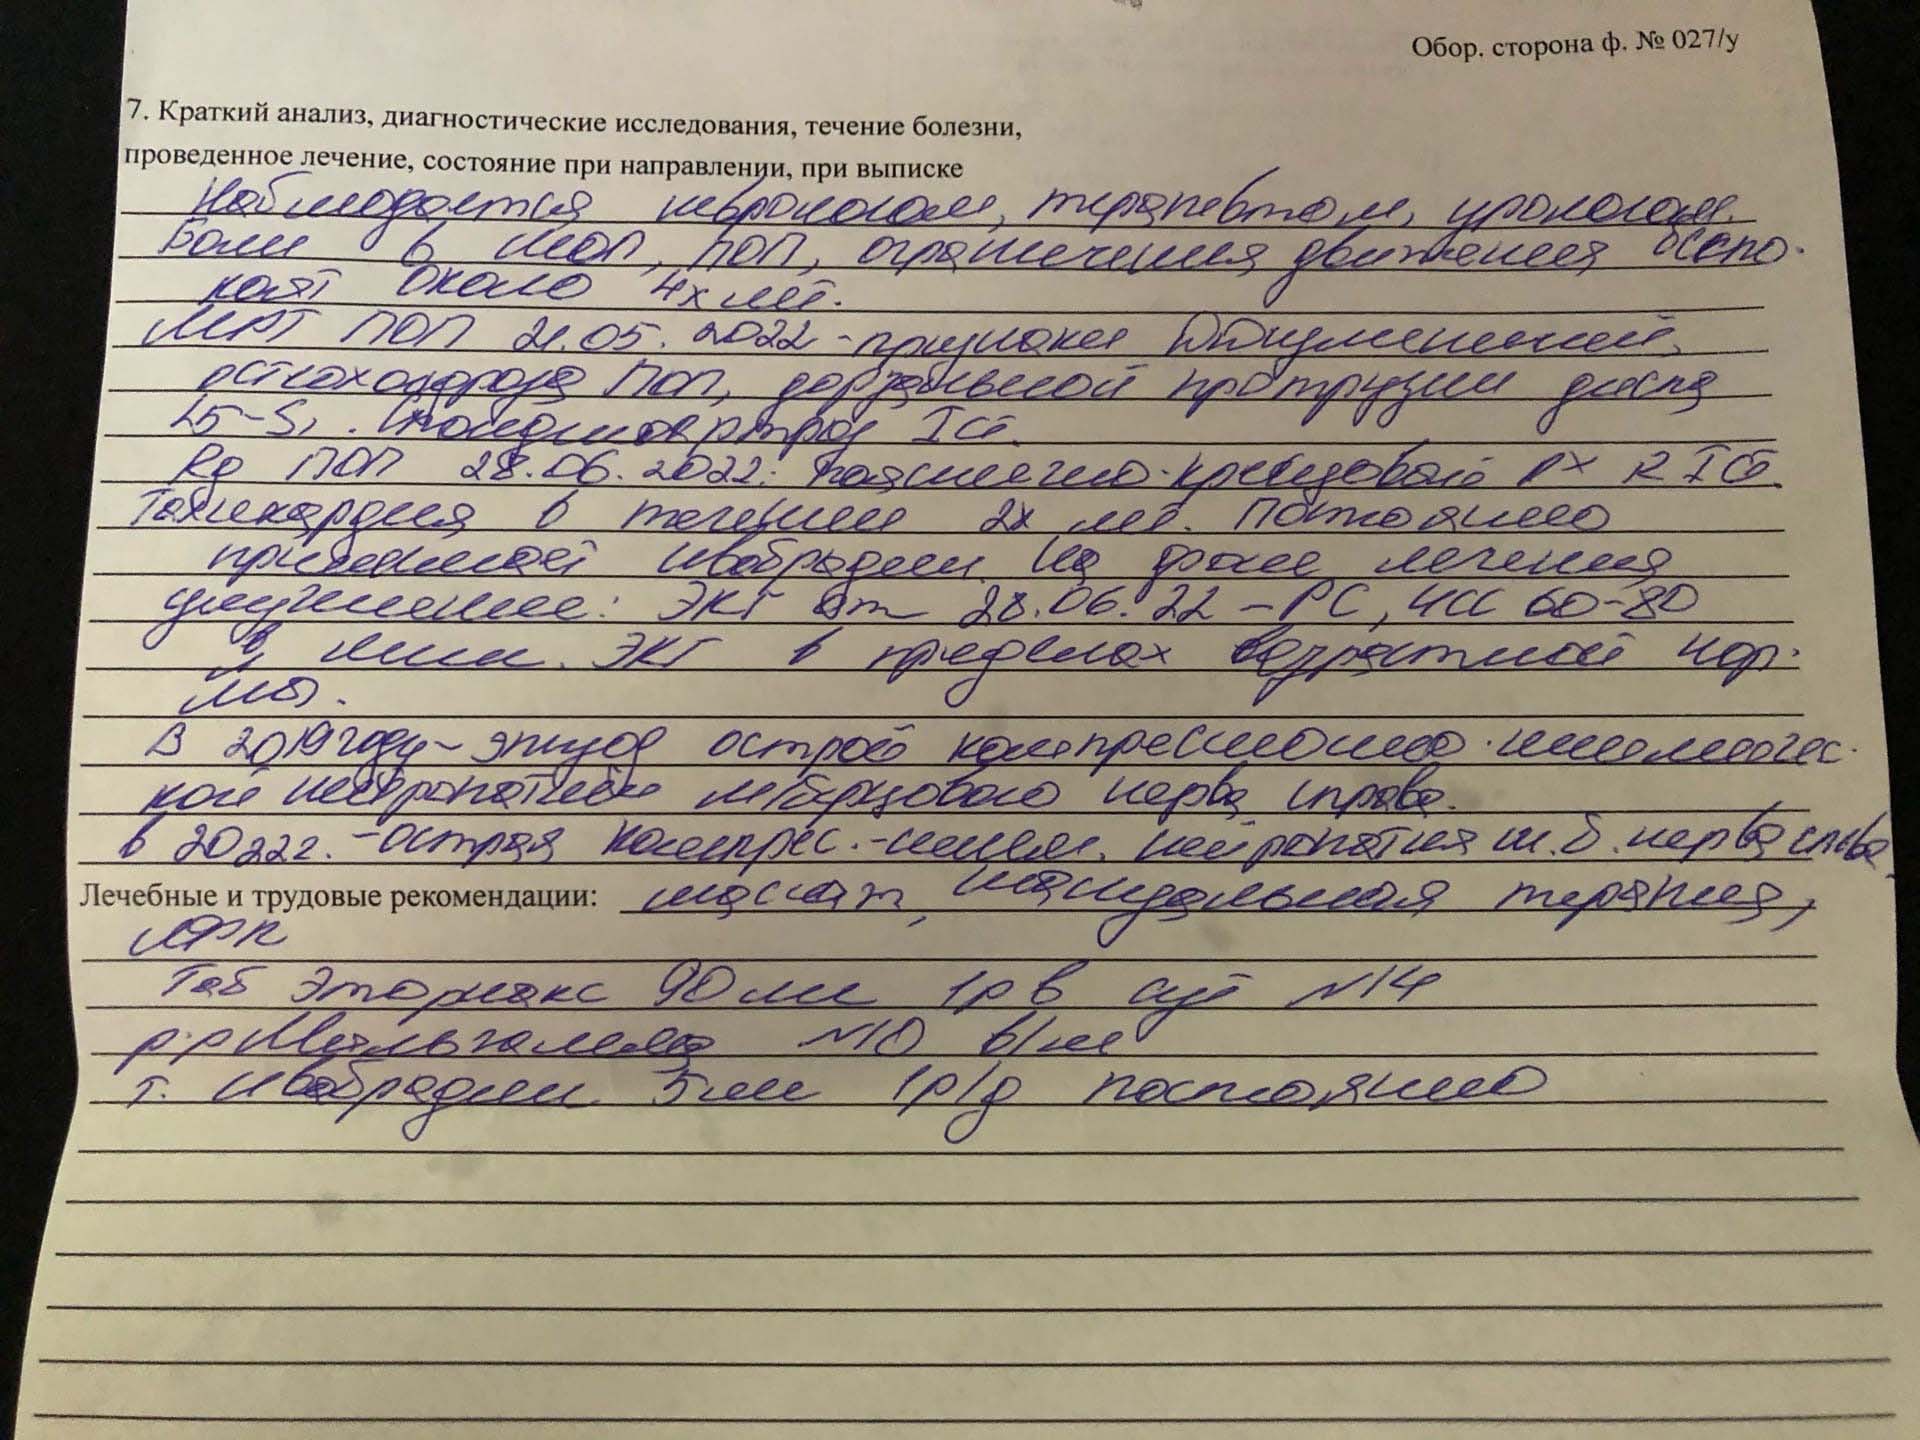 Обор. сторона ф. № 027/у
7. Краткий анализ, диагностические исследования, течение болезни,
проведенное лечение, состояние при направлении, при выписке
Наблюдается неврологом, терапевтом, урологом.
Боли в ШОП, ПОП, ограничения движения беспо-
коят около 4х лет.
МРТ ПОП 21.05.2022 - признаки
остеохондроза ПОП, дорзальной протрузии диска
L5-S1. Спондилоартроз I ст.
Rg ПОП 28.06.2022: пояснично-крестцовый R I ст.
Тахикардия в течении 2х лет. Постоянно
принимает ивабрадин. На фоне лечения
улучшение: ЭКГ от 28.06.22 - РС, ЧСС 60-80
в мин. ЭКГ в пределах возрастной нор-
мы.
В 2019 году - эпизод острой компрессионно-ишемичес-
кой нейропатии м/берцового нерва справа.
в 2022г. - острая компрес.-ишем. нейропатия м.б. нерва слева.
Лечебные и трудовые рекомендации: массаж, мануальная терапия,
ЛФК
Таб Эториакс 90 мг 1р в сут N14
р-р Мильгамма N10 в/м
т. ивабрадин 5 мг 1р/д постоянно